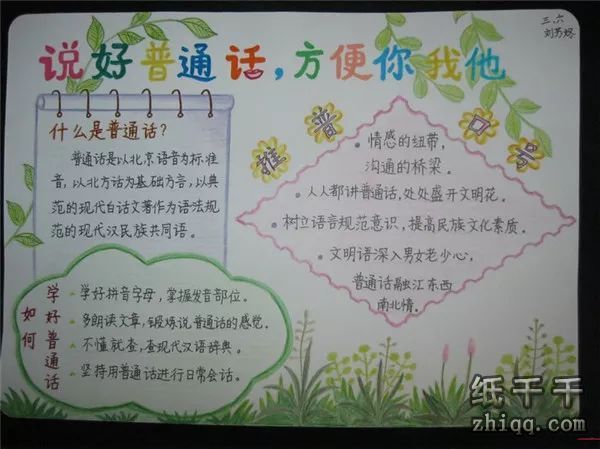 三、六
刘芳婷
说好普通话,方便你我他
什么是普通话?
普通话是以北京语音为标准
音,以北方话为基础方言,以典
范的现代白话文著作为语法规
范的现代汉民族共同语。
推普口号
情感的纽带,
沟通的桥梁。
人人都讲普通话,处处盛开文明花。
树立语音规范意识,提高民族文化素质。
文明语深入男女老少心,
普通话融汇东西
南北情。
如何
学好普通话
学好拼音字母,掌握发音部位。
多朗读文章,锻炼说普通话的感觉。
不懂就查,查现代汉语辞典。
坚持用普通话进行日常会话。
纸千千
zhiqq.com